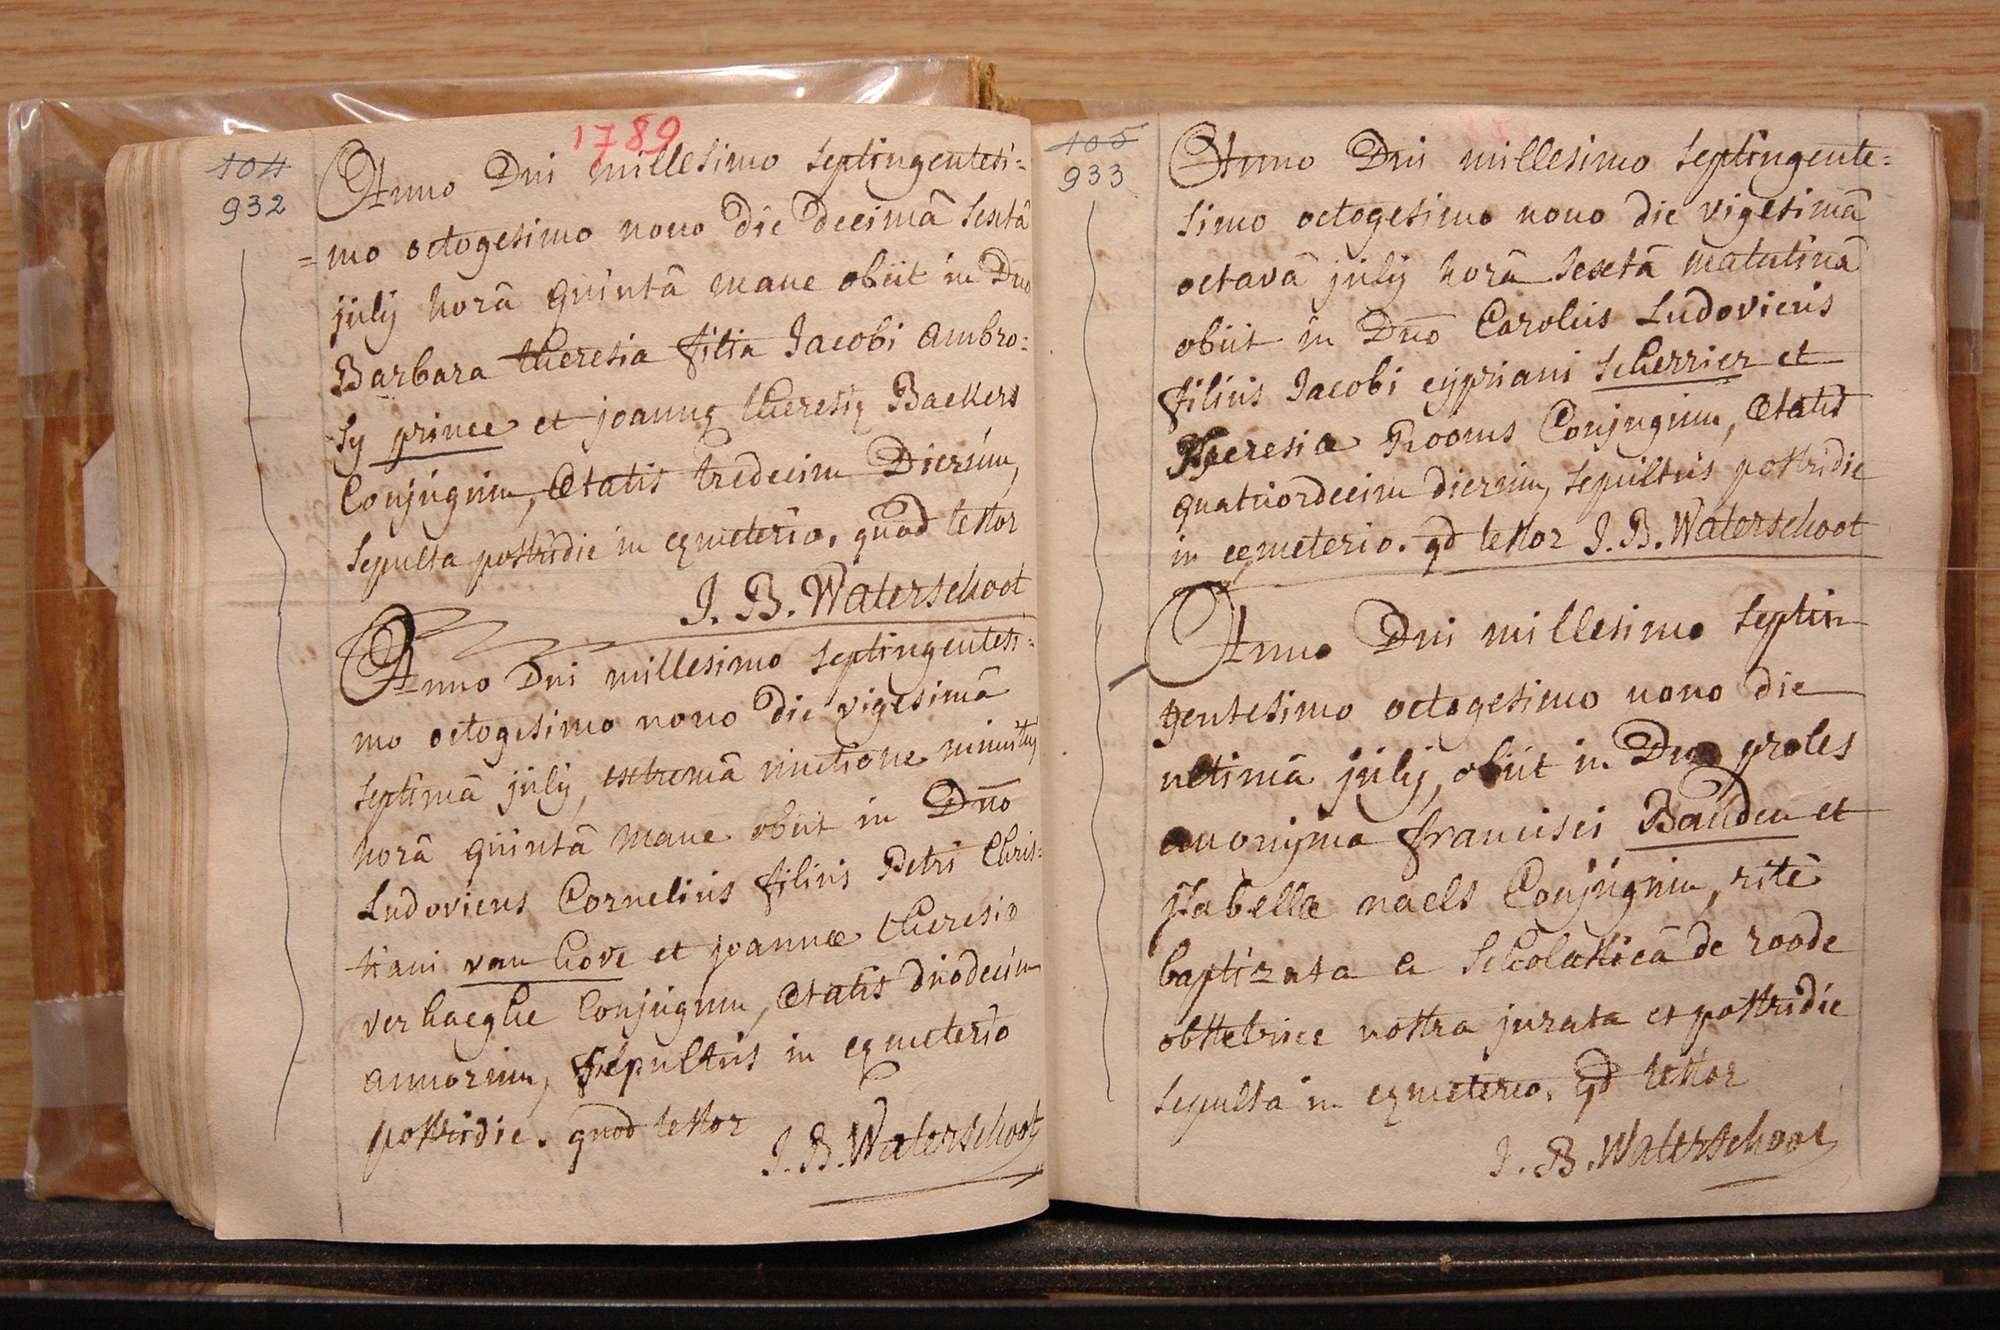 1789
104
932
Anno Dni millesimo septingentesi=
=mo octogesimo nono die decimâ sextâ
july horâ quintâ mane obiit in Dno
Barbara theresia filia Jacobi ambro:
sy prince et joannę theresię Backers
Conjugum, ætatis tredecim Dierum,
sepulta postridie in cęmeterio. quod testor
J. B. Waterschoot
Anno Dni millesimo septingentesi=
mo octogesimo nono die vigesimâ
septimâ july, extremâ unctione
horâ quintâ mane obiit in Dno
Ludovicus Cornelius filius Petri Chris=
tiani van hove et joannæ theresiæ
verhaeghe Conjugum, ætatis duodecim
annorum, sepultus in cęmeterio
postridie. quod testor J. B. Waterschoot
105
933
Anno Dni millesimo septingente=
simo octogesimo nono die vigesimâ
octavâ july horâ sextâ matutinâ
obiit in Dno Carolus Ludovicus
filius Jacobi cypriani scherrier et
Theresiæ Rooms Conjugum, ætatis
quatuordecim dierum, sepultus postridie
in cemeterio. qd testor J. B. Waterschoot
Anno Dni millesimo septin
gentesimo octogesimo nono die
ultimâ july, obiit in Dno proles
anonyma francisci Bauden et
jsabellæ naels Conjugum, ritè
baptizata a scholasticâ de roode
obstetrice nostra jurata et postridie
sepulta in cęmeterio. qd testor
J. B. Waterschoot